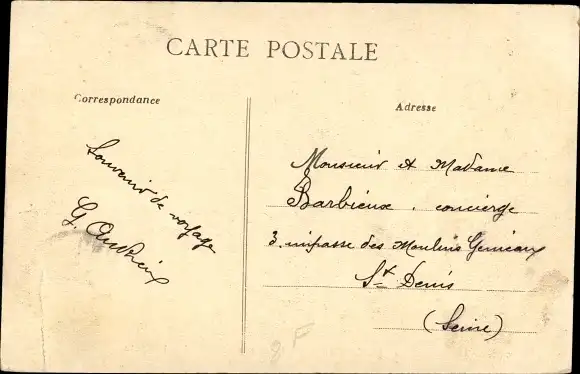 CARTE POSTALE
Correspondance
Adresse
Souvenir de voyage
G.
Monsieur et Madame
Barbieux. concierge
3. impasse des Moulins Gemeaux
St Denis
(Seine)